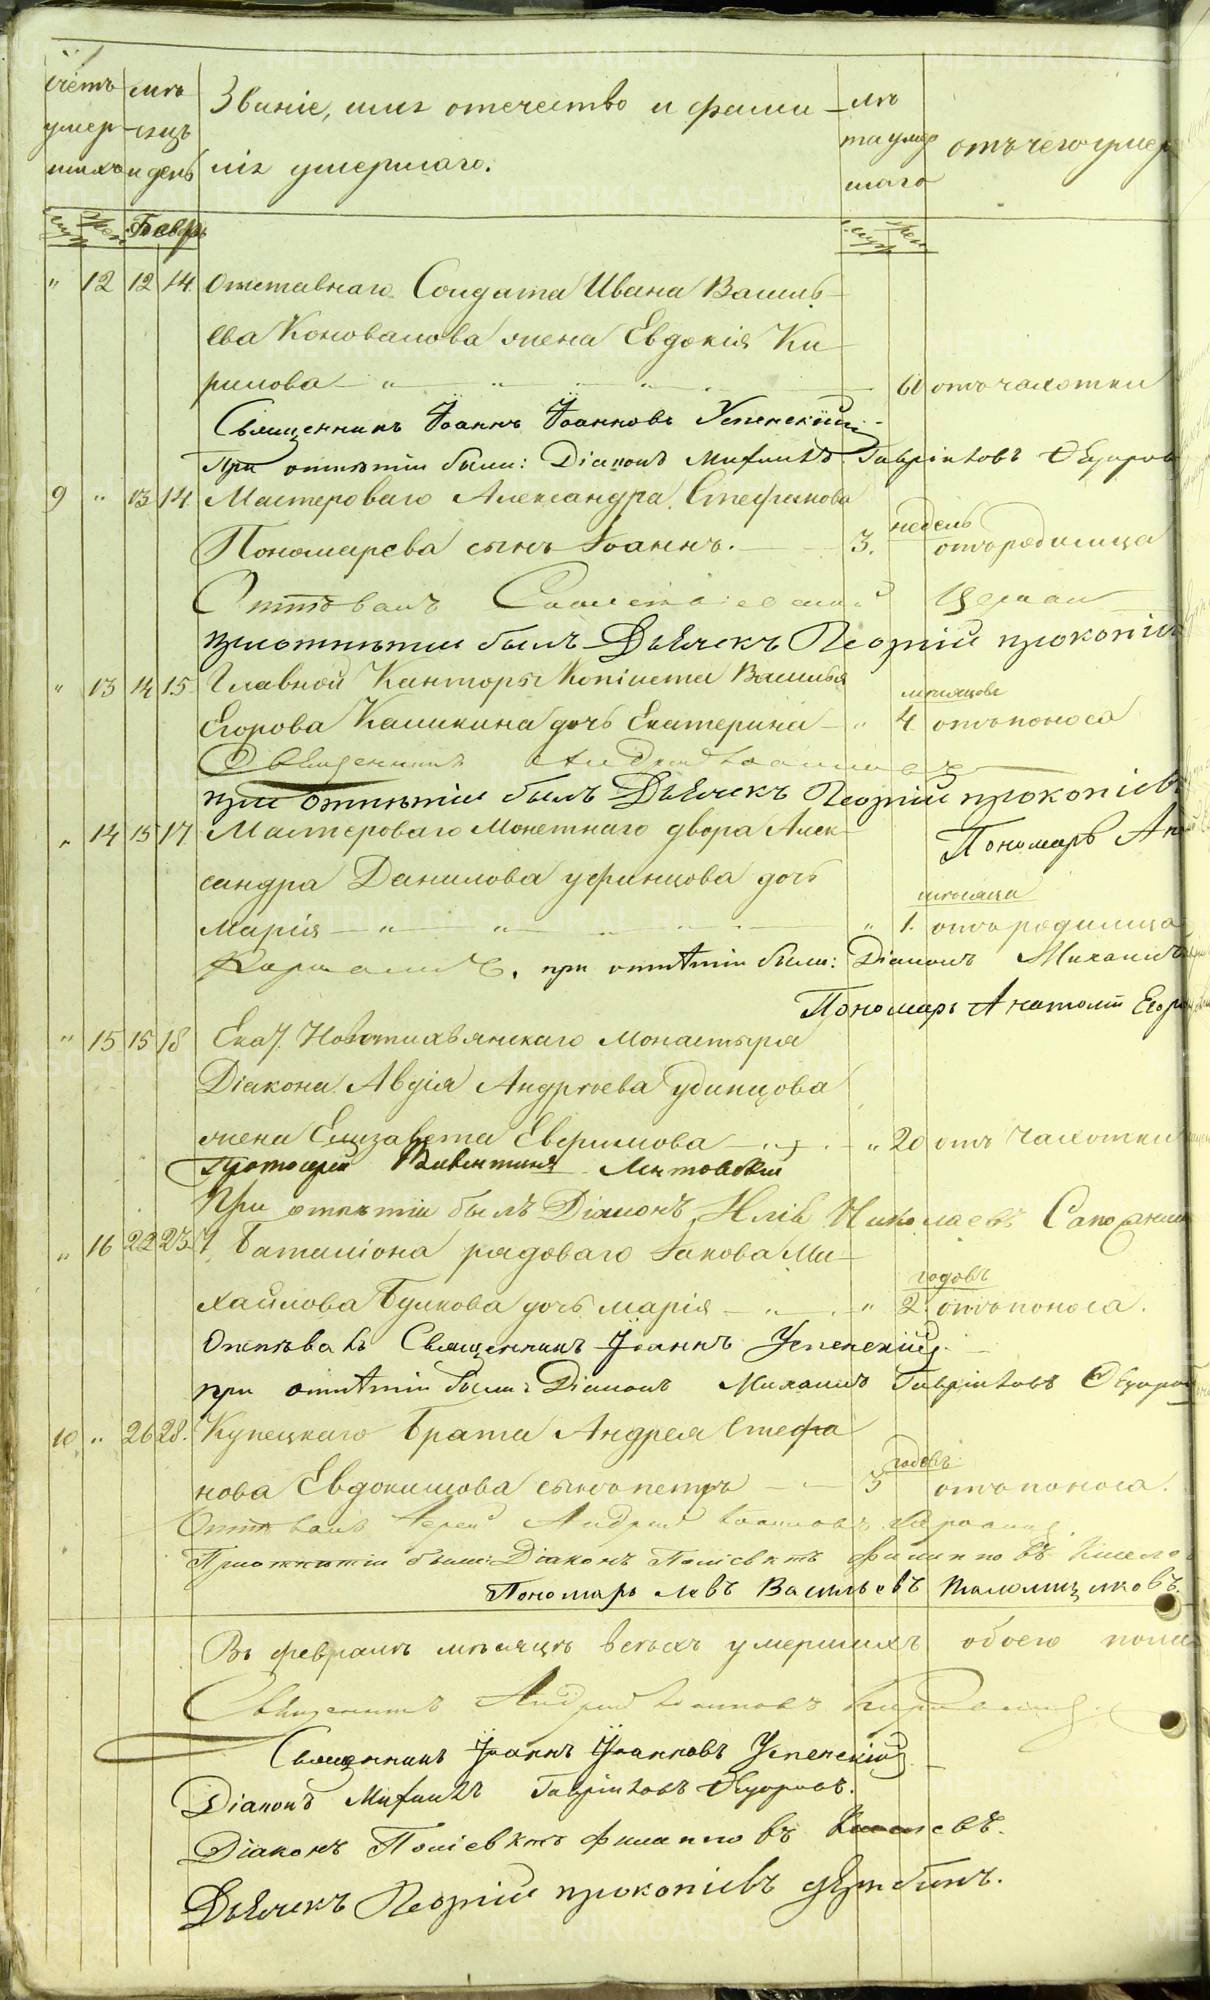 Счетъ умер шихъ
мѣ сяцъ и день
Званіе, имя отечество и фами лія умершаго.
лѣ та умер шаго
отъ чего умер
муж. жен.
Февр.
муж. жен.
" 12 12 14 Отставнаго Солдата Ивана Василь
ева Коновалова жена Евдокія Ки
рилова 60 отъ чахотки
Священникъ Іоаннъ Іоанновъ Успенскій
При отпѣтіи были: Діаконъ Михаилъ Гавріиловъ
9 " 13 14 Мастероваго Александра Стефанова
недель
Пономарева сынъ Іоаннъ. 3. отъ родимца
Отпѣвалъ
при отпѣтіи былъ Дьячекъ Георгій прокопіев
" 13 14 15 Главной Канторы Копіиста Василья
мѣсяцовъ
Егорова Калинина дочь Екатерина " 4 отъ поноса
Священникъ Андрей Іоанновъ
при отпѣтіи былъ Дьячекъ Георгій прокопіевъ
Пономарь Ана
" 14 15 17 Мастероваго Монетнаго двора Алек
сандра Данилова уфинцова дочь
месяца
Марія " 1. отъ родимца
при отпѣтіи были: Діаконъ Михаилъ
Пономарь Анатолій Егор
" 15 15 18 Екат. Новотихвинскаго монастыря
Діакона Авдія Андреева удинцова
жена Елизавета Евфимова " 20 отъ чахотки
Протоіерей
При отпѣтіи былъ Діаконъ Илія Николаевъ
" 16 22 23 1 Баталіона рядоваго Іакова Ми
годовъ
хайлова Булкова дочь марія " 2 отъ поноса.
Отпѣвалъ Священникъ Іоаннъ Успенскій
при отпѣтіи были Діаконъ Михаилъ Гавріиловъ
10 " 26 28 Купецкаго Брата Андрея Стефа
годовъ
нова Евдокимова сынъ петръ 5 отъ поноса.
Отпѣвалъ Іерей Андрей Іоанновъ
При отпѣтіи были: Діаконъ Поліевктъ филипповъ Киселев
Пономарь Левъ Васильевъ
Въ февралѣ мѣсяцѣ всѣхъ умершихъ обоего пола
Священникъ Андрей Іоанновъ
Священникъ Іоаннъ Іоанновъ Успенскій
Діаконъ Михаилъ Гавріиловъ
Діаконъ Поліевктъ филипповъ Киселевъ.
Дьячекъ Георгій прокопіевъ
METRIKI.GASO-URAL.RU